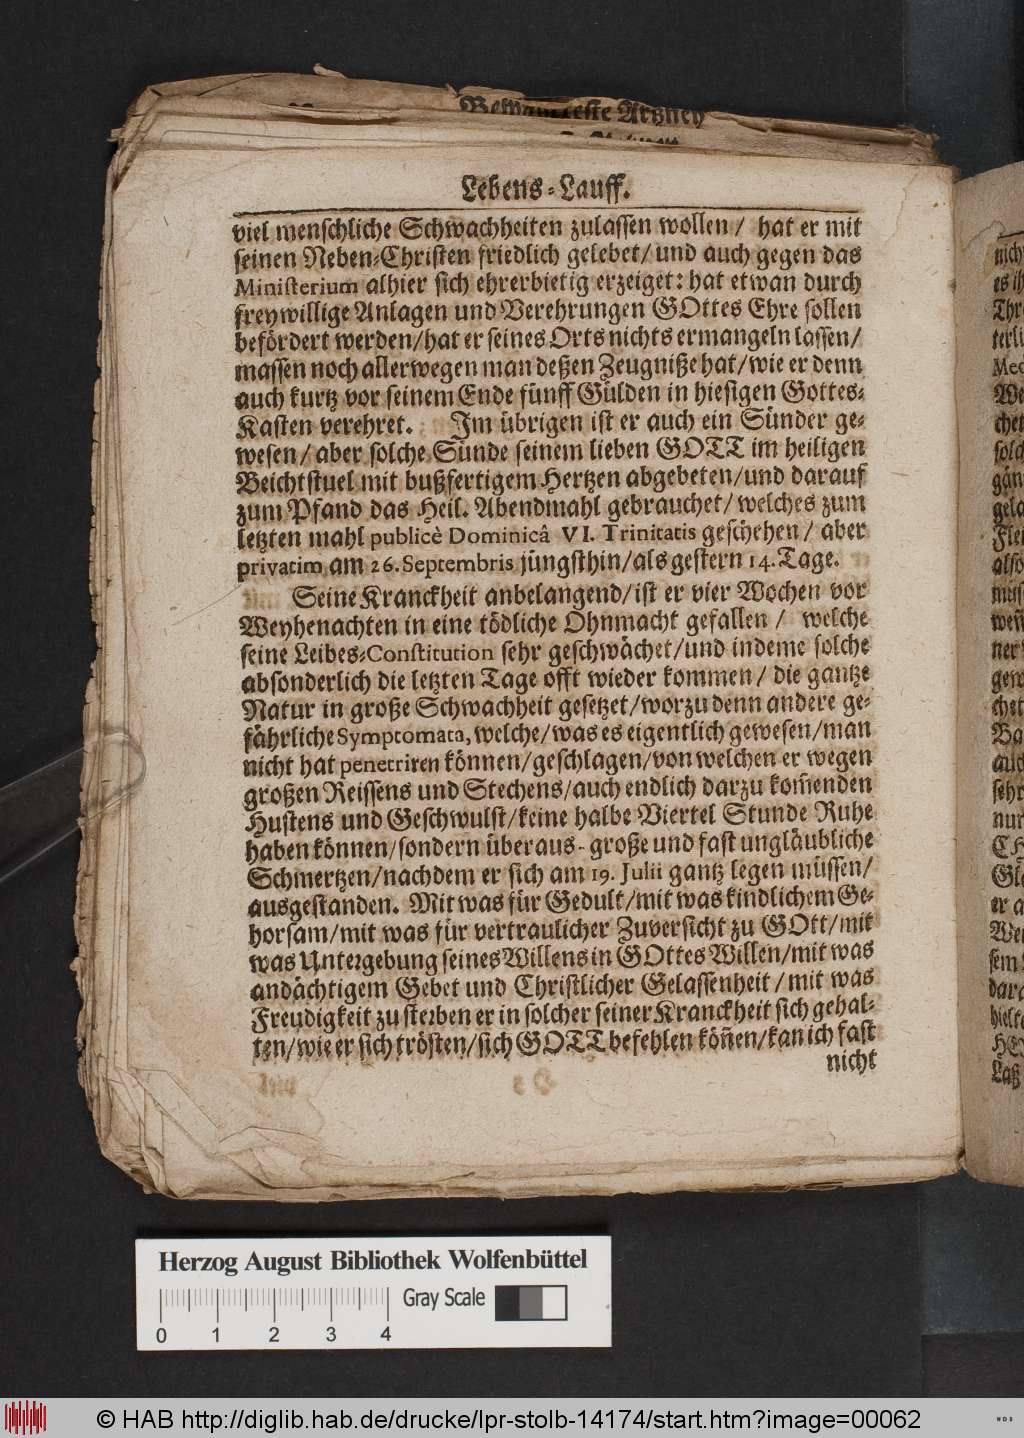 Bewährteste Artzney
Lebens-Lauff.
viel menschliche Schwachheiten zulassen wollen / hat er mit
seinen Neben-Christen friedlich gelebet / und auch gegen das
Ministerium alhier sich ehrerbietig erzeiget: hat etwan durch
freywillige Anlagen und Verehrungen GOttes Ehre sollen
befördert werden / hat er seines Orts nichts ermangeln lassen /
massen noch allerwegen man deßen Zeugniße hat / wie er denn
auch kurtz vor seinem Ende fünff Gülden in hiesigen Gottes-
Kasten verehret. Im übrigen ist er auch ein Sünder ge-
wesen / aber solche Sünde seinem lieben GOTT im heiligen
Beichtstuel mit bußfertigem Hertzen abgebeten / und darauf
zum Pfand das Heil. Abendmahl gebrauchet / welches zum
letzten mahl publicè Dominicâ VI. Trinitatis geschehen / aber
privatim am 26. Septembris jüngsthin / als gestern 14. Tage.
Seine Kranckheit anbelangend / ist er vier Wochen vor
Weyhenachten in eine tödliche Ohnmacht gefallen / welche
seine Leibes-Constitution sehr geschwächet / und indeme solche
absonderlich die letzten Tage offt wieder kommen / die gantze
Natur in große Schwachheit gesetzet / worzu denn andere ge-
fährliche Symptomata, welche / was es eigentlich gewesen / man
nicht hat penetriren können / geschlagen / von welchen er wegen
großen Reissens und Stechens / auch endlich darzu kom̃enden
Hustens und Geschwulst / keine halbe Viertel Stunde Ruhe
haben können / sondern überaus-große und fast ungläubliche
Schmertzen / nachdem er sich am 19. Julii gantz legen müssen /
ausgestanden. Mit was für Gedult / mit was kindlichem Ge-
horsam / mit was für vertraulicher Zuversicht zu GOtt / mit
was Untergebung seines Willens in GOttes Willen / mit was
andächtigem Gebet und Christlicher Gelassenheit / mit was
Freudigkeit zu sterben er in solcher seiner Kranckheit sich gehal-
ten / wie er sich trösten / sich GOTT befehlen kön̄en / kan ich fast
nicht
Herzog August Bibliothek Wolfenbüttel
Gray Scale
0 1 2 3 4
© HAB http://diglib.hab.de/drucke/lpr-stolb-14174/start.htm?image=00062